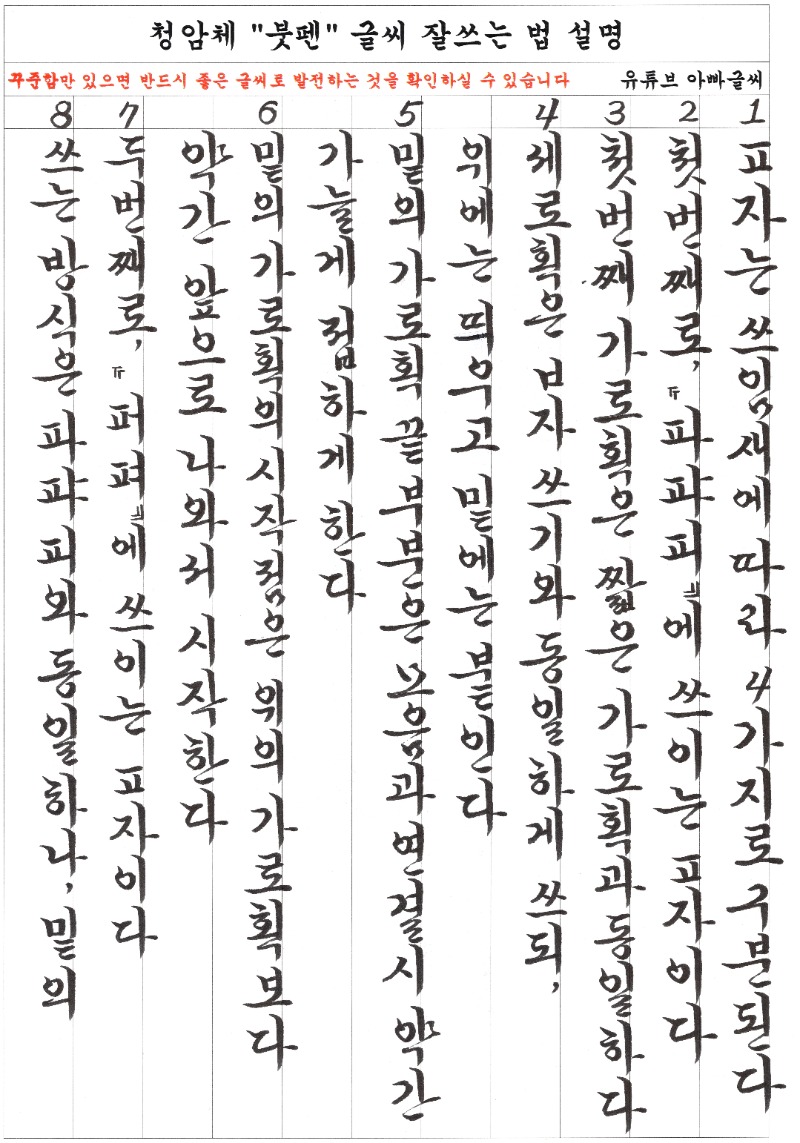 청암체 "붓펜" 글씨 잘쓰는 법 설명
꾸준함만 있으면 반드시 좋은 글씨로 발전하는 것을 확인하실 수 있습니다
유튜브 아빠글씨
1 ㅍ자는 쓰임새에 따라 4가지로 구분된다
2 첫번째로, 『파퍄피』에 쓰이는 ㅍ자이다
3 첫번째 가로획은 짧은 가로획과 동일하다
4 세로획은 ㅂ자 쓰기와 동일하게 쓰되,
위에는 띄우고 밑에는 붙인다
5 밑의 가로획 끝부분은 모음과 연결시 약간
가늘게 접하게 한다
6 밑의 가로획의 시작점은 위의 가로획보다
약간 앞으로 나와서 시작한다
7 두번째로, 『퍼펴』에 쓰이는 ㅍ자이다
8 쓰는 방식은 파퍄피와 동일하나, 밑의